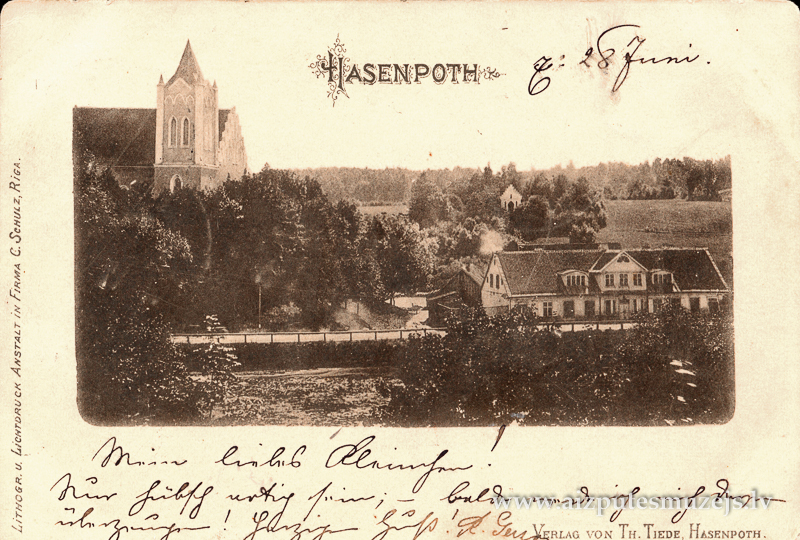 HASENPOTH
28 Juni.
LITHOGR. U. LICHTDRUCK ANSTALT IN FIRMA C. SCHULZ, RIGA.
Mein liebes Kleinchen!
Nur hübsch artig sein, - bald werde ich mich davon
überzeugen! Herzigen Gruß.
www.aizputesmuzejs.lv
VERLAG VON TH. TIEDE, HASENPOTH.